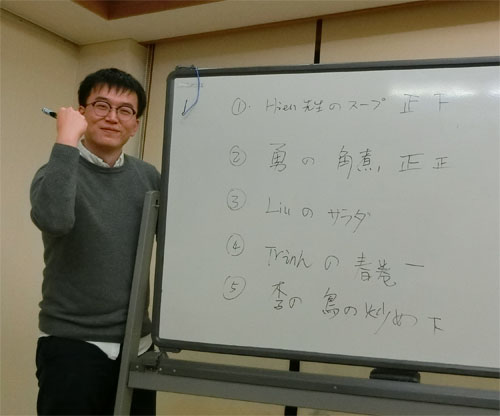 ① Hien 先生のスープ 正下
② 勇の角煮 正正
③ Liu の サラダ
④ Trinh の 春巻 一
⑤ 李の 鳥の炒め 下